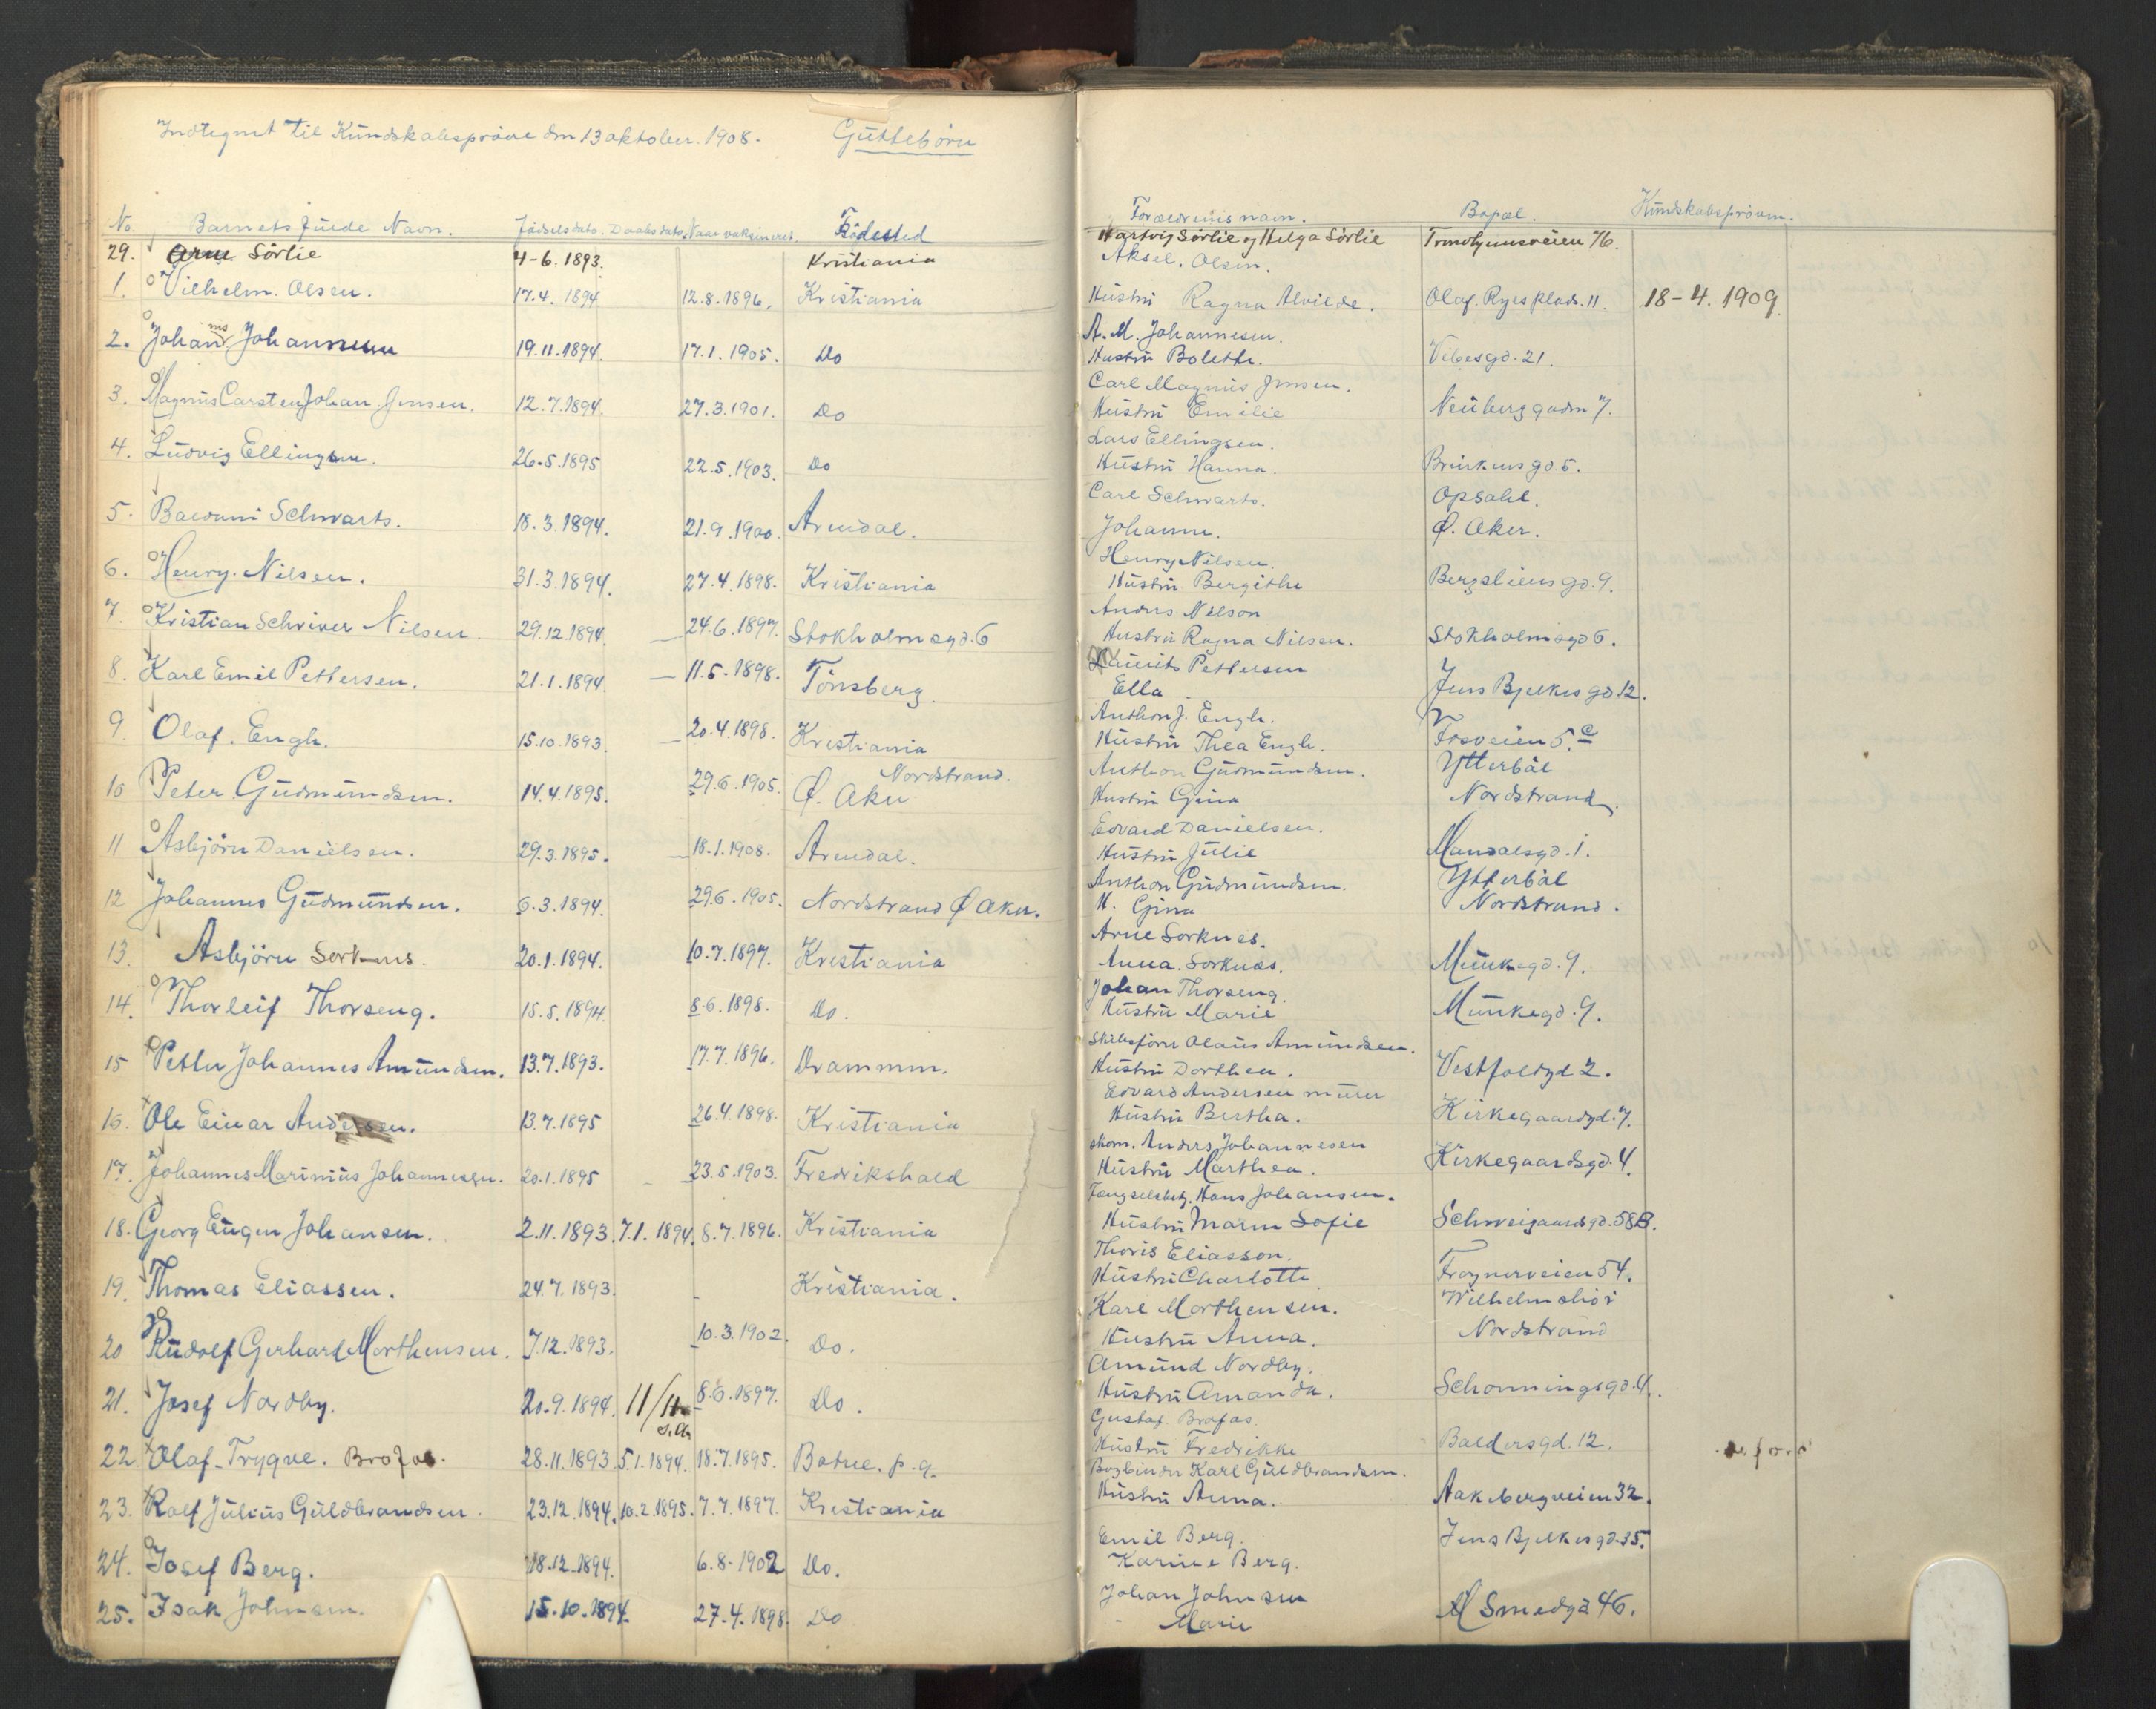 Indtegnet til Kundskabsprøve den 13 oktober. 1908. Guttebørn
No. Barnets fulde Navn. Fødselsdato. Daabsdato. Naar vaksineret. Födested
29. Arne Sörlie 4-6.1893. Kristiania
1. Vilhelm. Olsen. 17.4.1894 12.8.1896. Kristiania
2. Johannes Johannesen 19.11.1894. 17.1.1905. Do
3. Magnus Carsten Johan Jensen. 12.7.1894. 27.3.1901. Do
4. Ludvig Ellingsen. 26.5.1895 22.5.1903. Do
5. Schwarts. 18.3.1894. 21.9.1900. Arendal.
6. Henry. Nilsen. 31.3.1894. 27.4.1898. Kristiania
7. Kristian Schriver Nilsen. 29.12.1894. 24.6.1897. Stokholmsgd. 6
8. Karl Emil Pettersen. 21.1.1894. 11.5.1898. Tönsberg.
9. Olaf. Engh. 15.10.1893. 20.4.1898. Kristiania
Nordstrand.
10 Peter Gudmundsen. 14.4.1895. 29.6.1905. Ø. Aker
11 Asbjörn Danielsen. 29.3.1895. 18.1.1908. Arendal.
12 Johannes Gudmundsen. 6.3.1894. 29.6.1905. Nordstrand Ø Aker.
13. Asbjörn Sorknes. 20.1.1894. 10.7.1897. Kristiania
14. Thorleif Thorseng. 15.5.1894. 8.6.1898. Do.
15 Petter Johannes Amundsen. 13.7.1893. 17.7.1896. Drammen.
16. Ole Einar Andersen. 13.7.1895 26.4.1898. Kristiania
17. Johannes Marinius Johannesen. 20.1.1895 23.5.1903. Fredrikshald
18. Georg Eugen Johansen. 2.11.1893. 7.1.1894. 8.7.1896. Kristiania
19. Thomas Eliassen. 24.7.1893. - Kristiania.
20 Rudolf Gerhard Morthensen. 7.12.1893. 10.3.1902. Do.
21. Josef Nordby. 20.9.1894. 11/11 8.6.1897. Do.
22. Olaf Trygve. Brofos. 28.11.1893. 5.1.1894. 18.7.1895. Botne. p.g.
23. Rolf Julius Guldbrandsen. 23.12.1894. 10.2.1895. 7.7.1897. Kristiania
24. Josef Berg. 18.12.1894. 6.8.1902 Do.
25. Isak Johnsen. 15.10.1894. 27.4.1898. Do
Forældrenes navn. Bopæl. Kundskabsprøven.
Hartvig Sörlie og Helga Sörlie Trondhjemsveien 76.
Aksel. Olsen.
Hustru Ragna Alvilde. Olaf. Ryes Plads. 11. 18-4.1909
A. M. Johannesen.
Hustru Bolette. Vibesgd. 21.
Carl Magnus Jensen.
Hustru Emilie Neuberggaden 7.
Lars Ellingsen.
Hustru Hanna. Brinkens gd. 5.
Carl Schwarts. Opsahl.
Johanne. Ø. Aker.
Henry Nilsen.
Hustru Bergithe Bergsliens gd. 9.
Anders Nilson
Hustru Ragna Nilsen. Stokholmsgd 6.
Laurits Pettersen
Ella Jens Bjelkes gd. 12.
Anthon J. Engh.
Hustru Thea Engh. Fosveien 5.c
Anthon Gudmundsen. Ytterbøl
Hustru Gina Nordstrand.
Edvard Danielsen.
Hustru Julie Mandalsgd. 1.
Anthon Gudmundsen. Ytterbøl
H. Gina Nordstrand.
Arne Sorknes.
Anna. Sorknæs. Munkegd. 9.
Johan Thorseng.
Hustru Marie Munkegd. 9.
Skibsfører Olaus Amundsen.
Hustru Dorthea. Vestfoldgd 2.
Edvard Andersen murer
Hustru Bertha. Kirkegaardsgd. 7.
skom. Anders Johannesen
Hustru Marthea. Kirkegaardsgd. 4.
Fængselsbetj. Hans Johansen.
Hustru Maren Sofie Schweigaardsgd. 58B.
Thoris Eliasson.
Hustru Charlotte Frognerveien 54.
Karl Morthensen. Wilhelmshöi
Hustru Anna. Nordstrand
Amund Nordby.
Hustru Amanda. Schønningsgd. 4.
Gustaf. Brofos.
Hustru Fredrikke Baldersgd. 12.
Bogbinder Karl Guldbrandsen.
Hustru Anna. Aakebergveien 32.
Emil Berg. Jens Bjelkes gd. 35.
Karine Berg.
Johan Johnsen
Marie Smedgd 46.